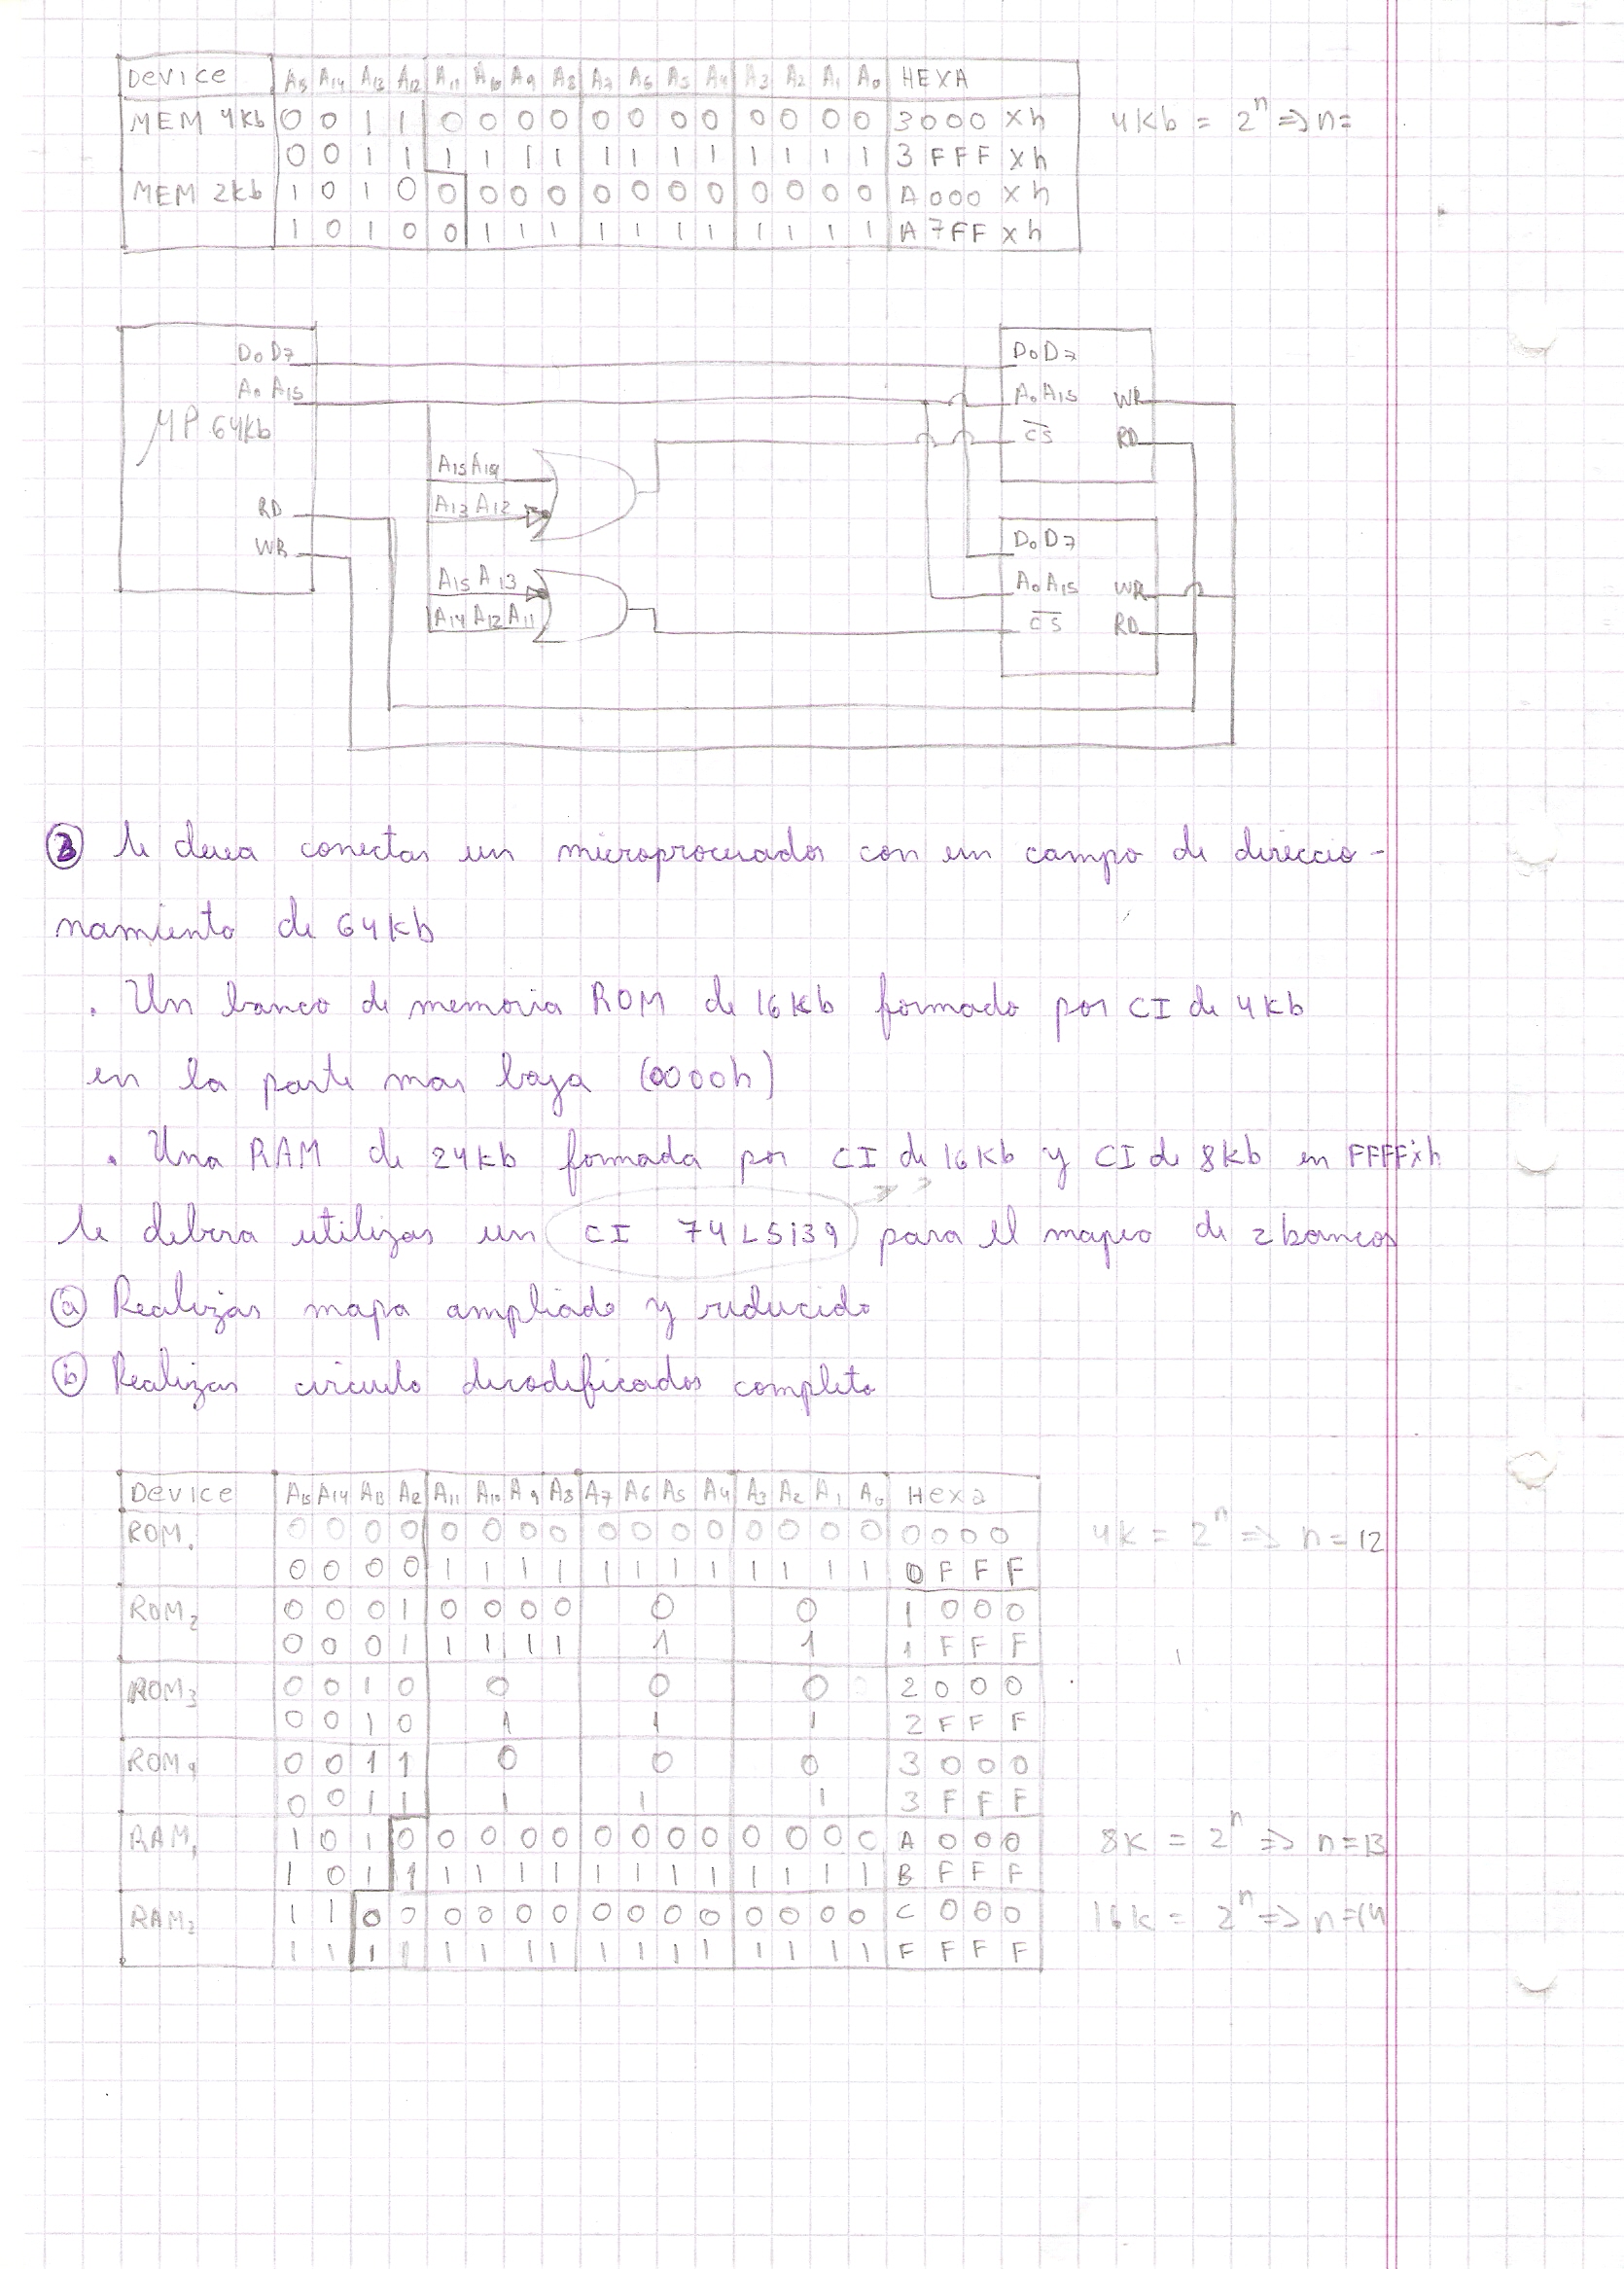 Device A15 A14 A13 A12 A11 A10 A9 A8 A7 A6 A5 A4 A3 A2 A1 A0 HEXA
MEM 4Kb 0 0 1 1 0 0 0 0 0 0 0 0 0 0 0 0 3000 xh 4Kb = 2^n => n=
0 0 1 1 1 1 1 1 1 1 1 1 1 1 1 1 3 FFF xh
MEM 2kb 1 0 1 0 0 0 0 0 0 0 0 0 0 0 0 0 A000 xh
1 0 1 0 0 1 1 1 1 1 1 1 1 1 1 1 A 7FF xh
D0 D7 D0 D7
A0 A15 A0 A15 WR
μP 64Kb CS RD
A15 A14
A13 A12
RD
WR D0 D7
A15 A13 A0 A15 WR
A14 A12 A11 CS RD
Se desea conectar un microprocesador con un campo de direccio-
namiento de 64Kb
. Un banco de memoria ROM de 16Kb formado por CI de 4Kb
en la parte mas baja (0000h)
. Una RAM de 24Kb formada por CI de 16Kb y CI de 8kb en FFFFxh
Se debera utilizar un CI 74LS139 para el mapeo de 2 bancos
a Realizar mapa ampliado y reducido
b Realizar circuito decodificador completo
Device A15 A14 A13 A12 A11 A10 A9 A8 A7 A6 A5 A4 A3 A2 A1 A0 Hexa
ROM1 0 0 0 0 0 0 0 0 0 0 0 0 0 0 0 0 0 0 0 0 4K = 2^n => n=12
0 0 0 0 1 1 1 1 1 1 1 1 1 1 1 1 0 F F F
ROM2 0 0 0 1 0 0 0 0 0 0 1 0 0 0
0 0 0 1 1 1 1 1 1 1 1 F F F
ROM3 0 0 1 0 0 0 0 2 0 0 0
0 0 1 0 1 1 1 2 F F F
ROM4 0 0 1 1 0 0 0 3 0 0 0
0 0 1 1 1 1 1 3 F F F
RAM1 1 0 1 0 0 0 0 0 0 0 0 0 0 0 0 0 A 0 0 0 8K = 2^n => n=13
1 0 1 1 1 1 1 1 1 1 1 1 1 1 1 1 B F F F
RAM2 1 1 0 0 0 0 0 0 0 0 0 0 0 0 0 0 C 0 0 0 16K = 2^n => n=14
1 1 1 1 1 1 1 1 1 1 1 1 1 1 1 1 F F F F